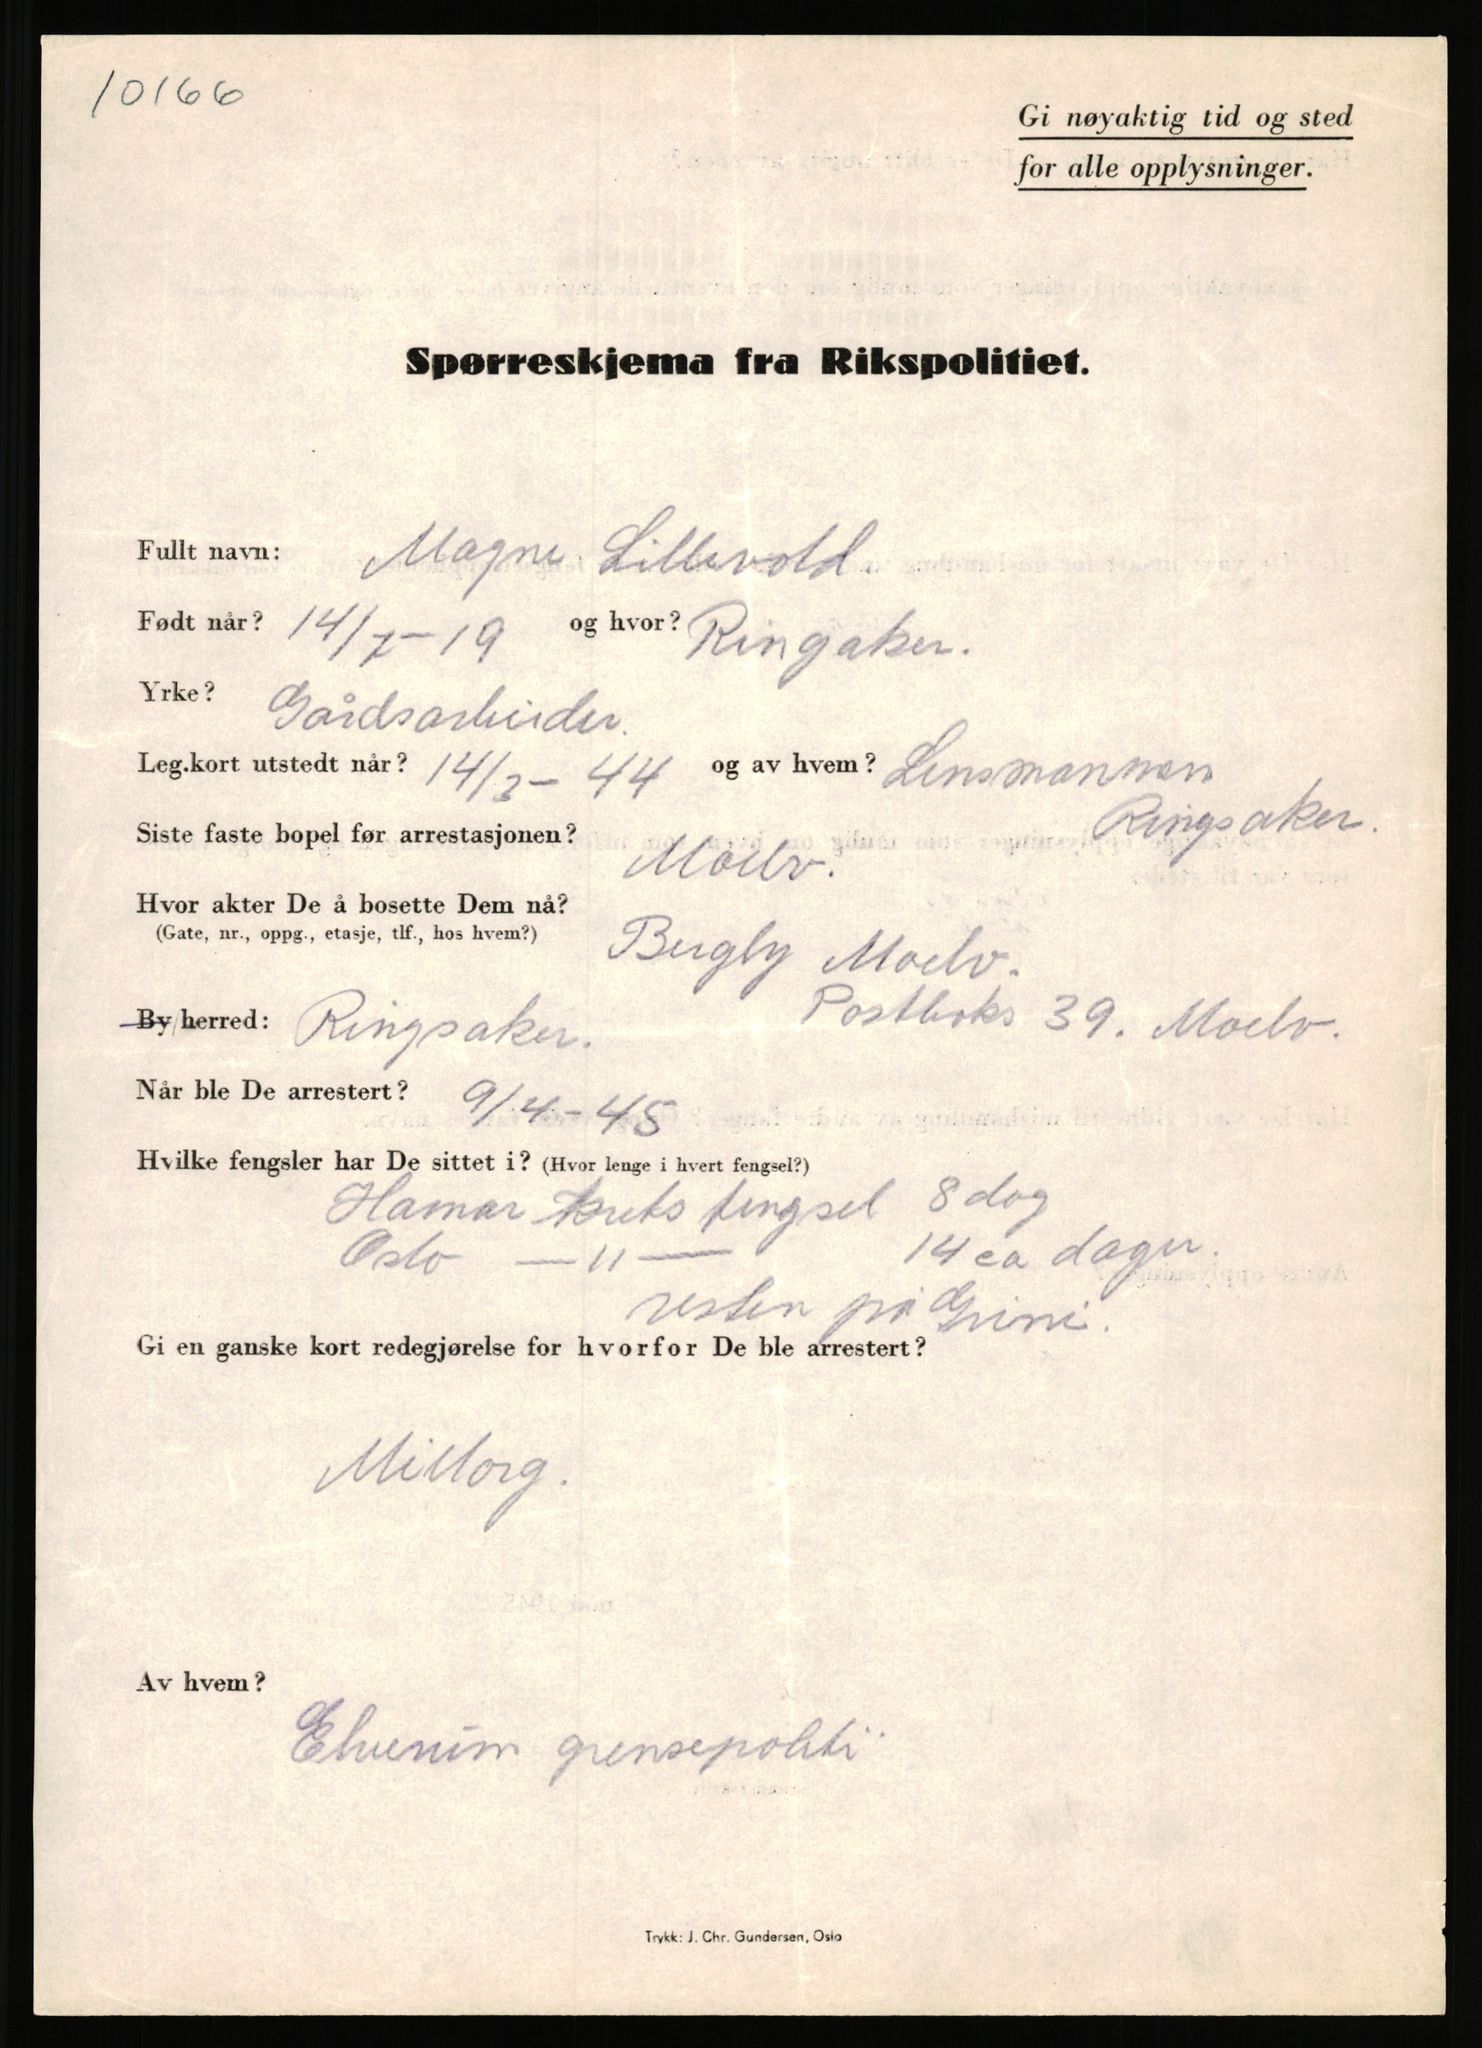 10166
Gi nøyaktig tid og sted
for alle opplysninger.
Spørreskjema fra Rikspolitiet.
Fullt navn: Magne Lillevold
Født når? 14/7-19 og hvor? Ringaker.
Yrke? Gårdsarbeider.
Leg.kort utstedt når? 14/3-44 og av hvem? Lensmannen
Ringsaker.
Siste faste bopel før arrestasjonen? Moelv.
Hvor akter De å bosette Dem nå?
(Gate, nr., oppg., etasje, tlf., hos hvem?) Bergly Moelv.
Postboks 39. Moelv.
By/herred: Ringsaker.
Når ble De arrestert? 9/4-45
Hvilke fengsler har De sittet i? (Hvor lenge i hvert fengsel?)
Hamar krets fengsel 8 dag
Oslo —"— 14 ca dager.
resten på Grini.
Gi en ganske kort redegjørelse for hvorfor De ble arrestert?
Millorg.
Av hvem?
Elverum grensepoliti
Trykk: J. Chr. Gundersen, Oslo